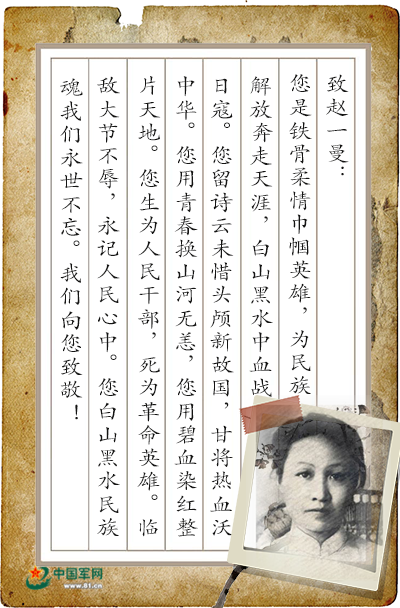 致赵一曼：
您是铁骨柔情巾帼英雄，为民族
解放奔走天涯，白山黑水中血战
日寇。您留诗云未惜头颅新故国，甘将热血沃
中华。您用青春换山河无恙，您用碧血染红整
片天地。您生为人民干部，死为革命英雄。临
敌大节不辱，永记人民心中。您白山黑水民族
魂我们永世不忘。我们向您致敬！
中国军网
www.81.cn